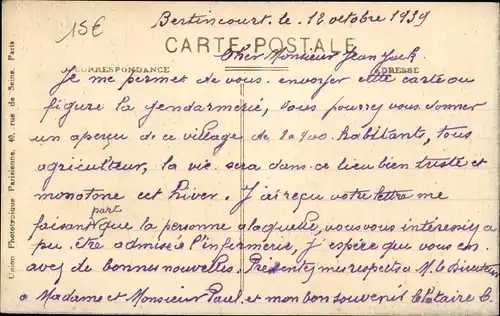 15€
Bertincourt. le. 12 octobre 1939
CARTE POSTALE
Cher Monsieur Jean
CORRESPONDANCE
ADRESSE
Je me permet de vous. envoyer cette carte ou
figure la gendarmerie, vous pourrez vous. donner
un aperçu de ce village de 8 a 900. habitants, tous
agriculteur, la vie. sera dans. ce lieu bien triste et
monotone cet hiver. J'ai reçu votre lettre me
faisant part que la personne a laquelle, vous vous interessiez a
pu. être admise a l'infirmerie, j'espère que vous en.
avez de bonnes nouvelles. Présentez mes respects a M. le Directeur
a Madame et Monsieur Paul. et mon bon souvenir
Union Phototypique Parisienne, 40, rue de Seine, Paris